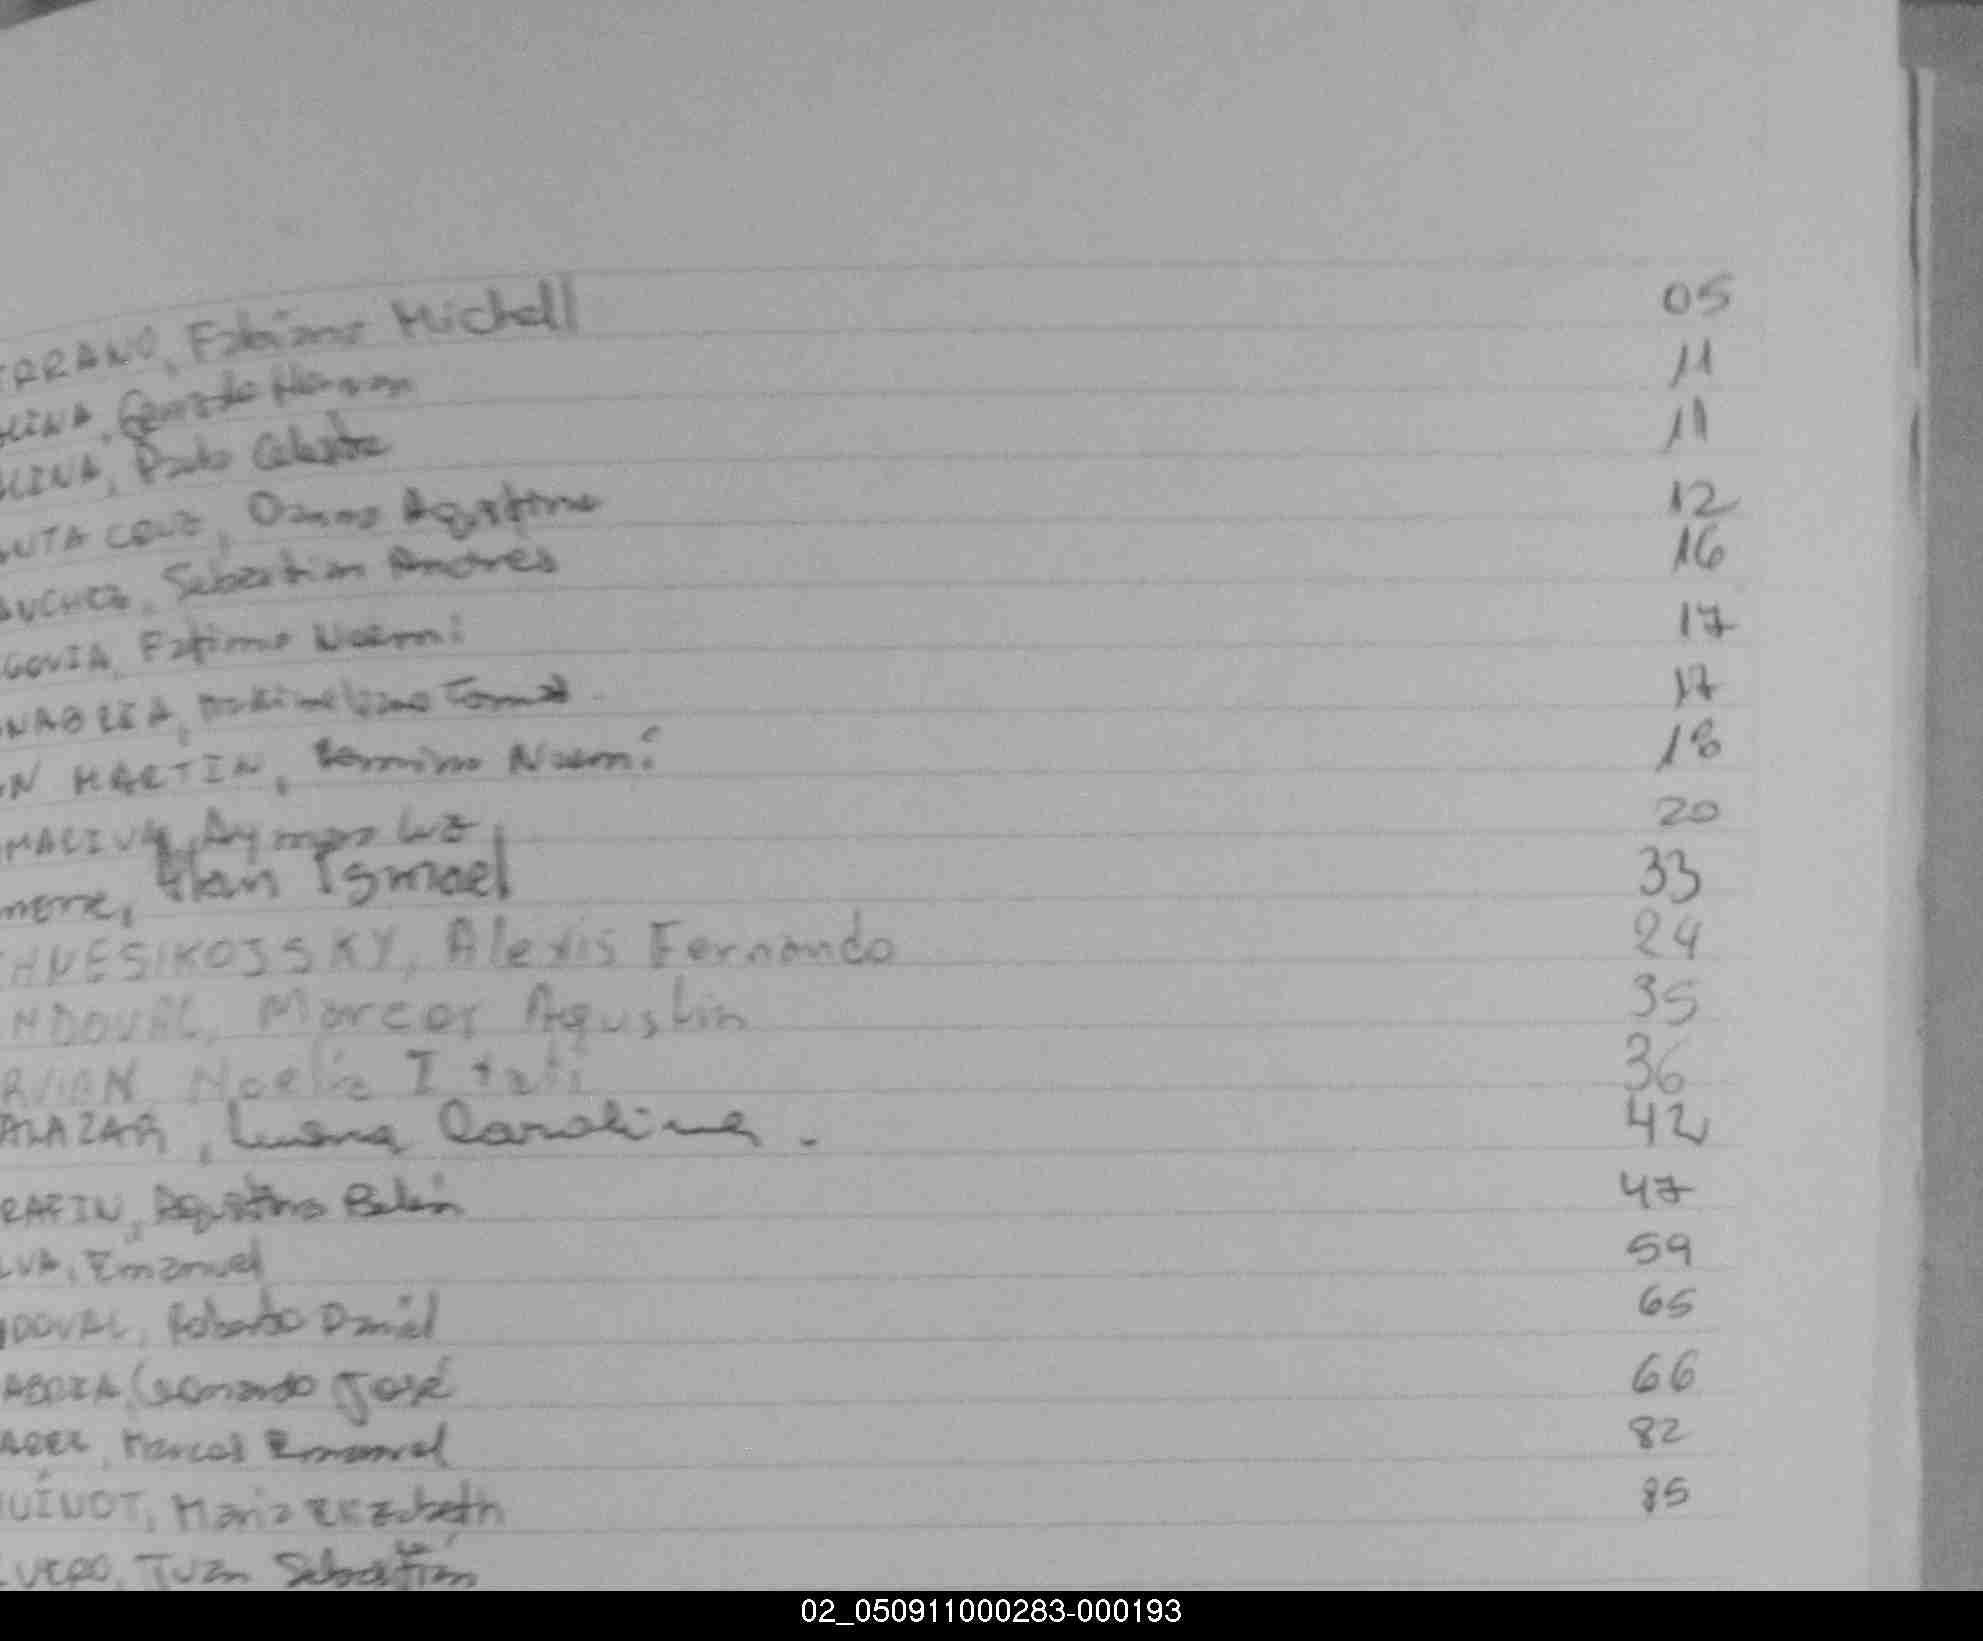 ERRANO, Fabiana Michell 05
LINA, Gonzalo Hernan 11
LINA, Pablo Celeste 11
NTA CRUZ, Dana Agustina 12
ANCHEZ, Sebastian Andres 16
GOVIA, Fatima Noemi 17
NABRIA, Maximeliano Tomas 17
N MARTIN, Noemi 18
MALIVA, Aymara Luz 20
Alan Ismael 33
HNESIKOJSKY, Alexis Fernando 24
NDOVAL, Marcos Agustin 35
RVIAN Noelia Itati 36
ALAZAR, Luana Carolina. 42
RAFIN, Agustina Belén 47
LVA, Emanuel 59
NDOVAL, Roberto Daniel 65
ABRIA, Leonardo José 66
Marcos Emanuel 82
UÍNOT, Maria Elizabeth 85
LVERO, Juan Sebastián
02_050911000283-000193